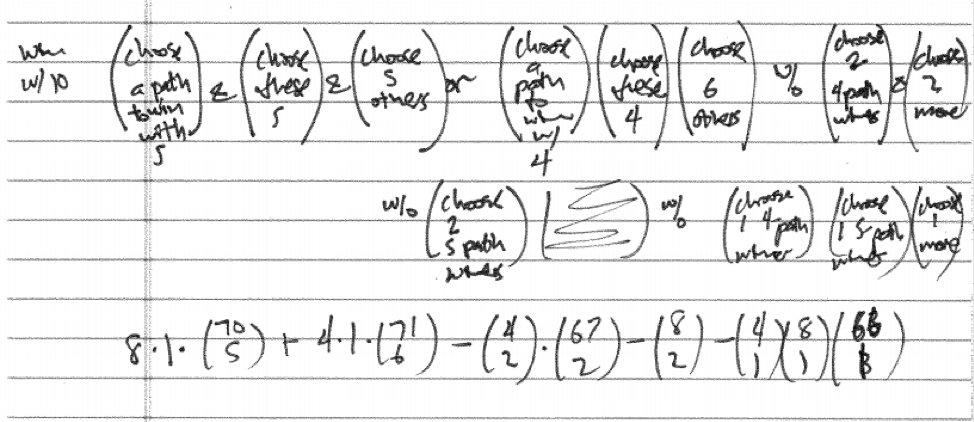 win w/ 10 (choose a path to win with 5) & (choose these 5) & (choose 5 others) or (choose a path to win w/ 4) (choose these 4) (choose 6 others) w/o (choose 2 4 path wins) & (choose 2 more)
w/o (choose 2 5 path wins) w/o (choose 1 4 path wins) (choose 1 5 path wins) (choose 1 more)
8·1·(70 5) + 4·1·(71 6) − (4 2)·(67 2) − (8 2) − (4 1)(8 1)(